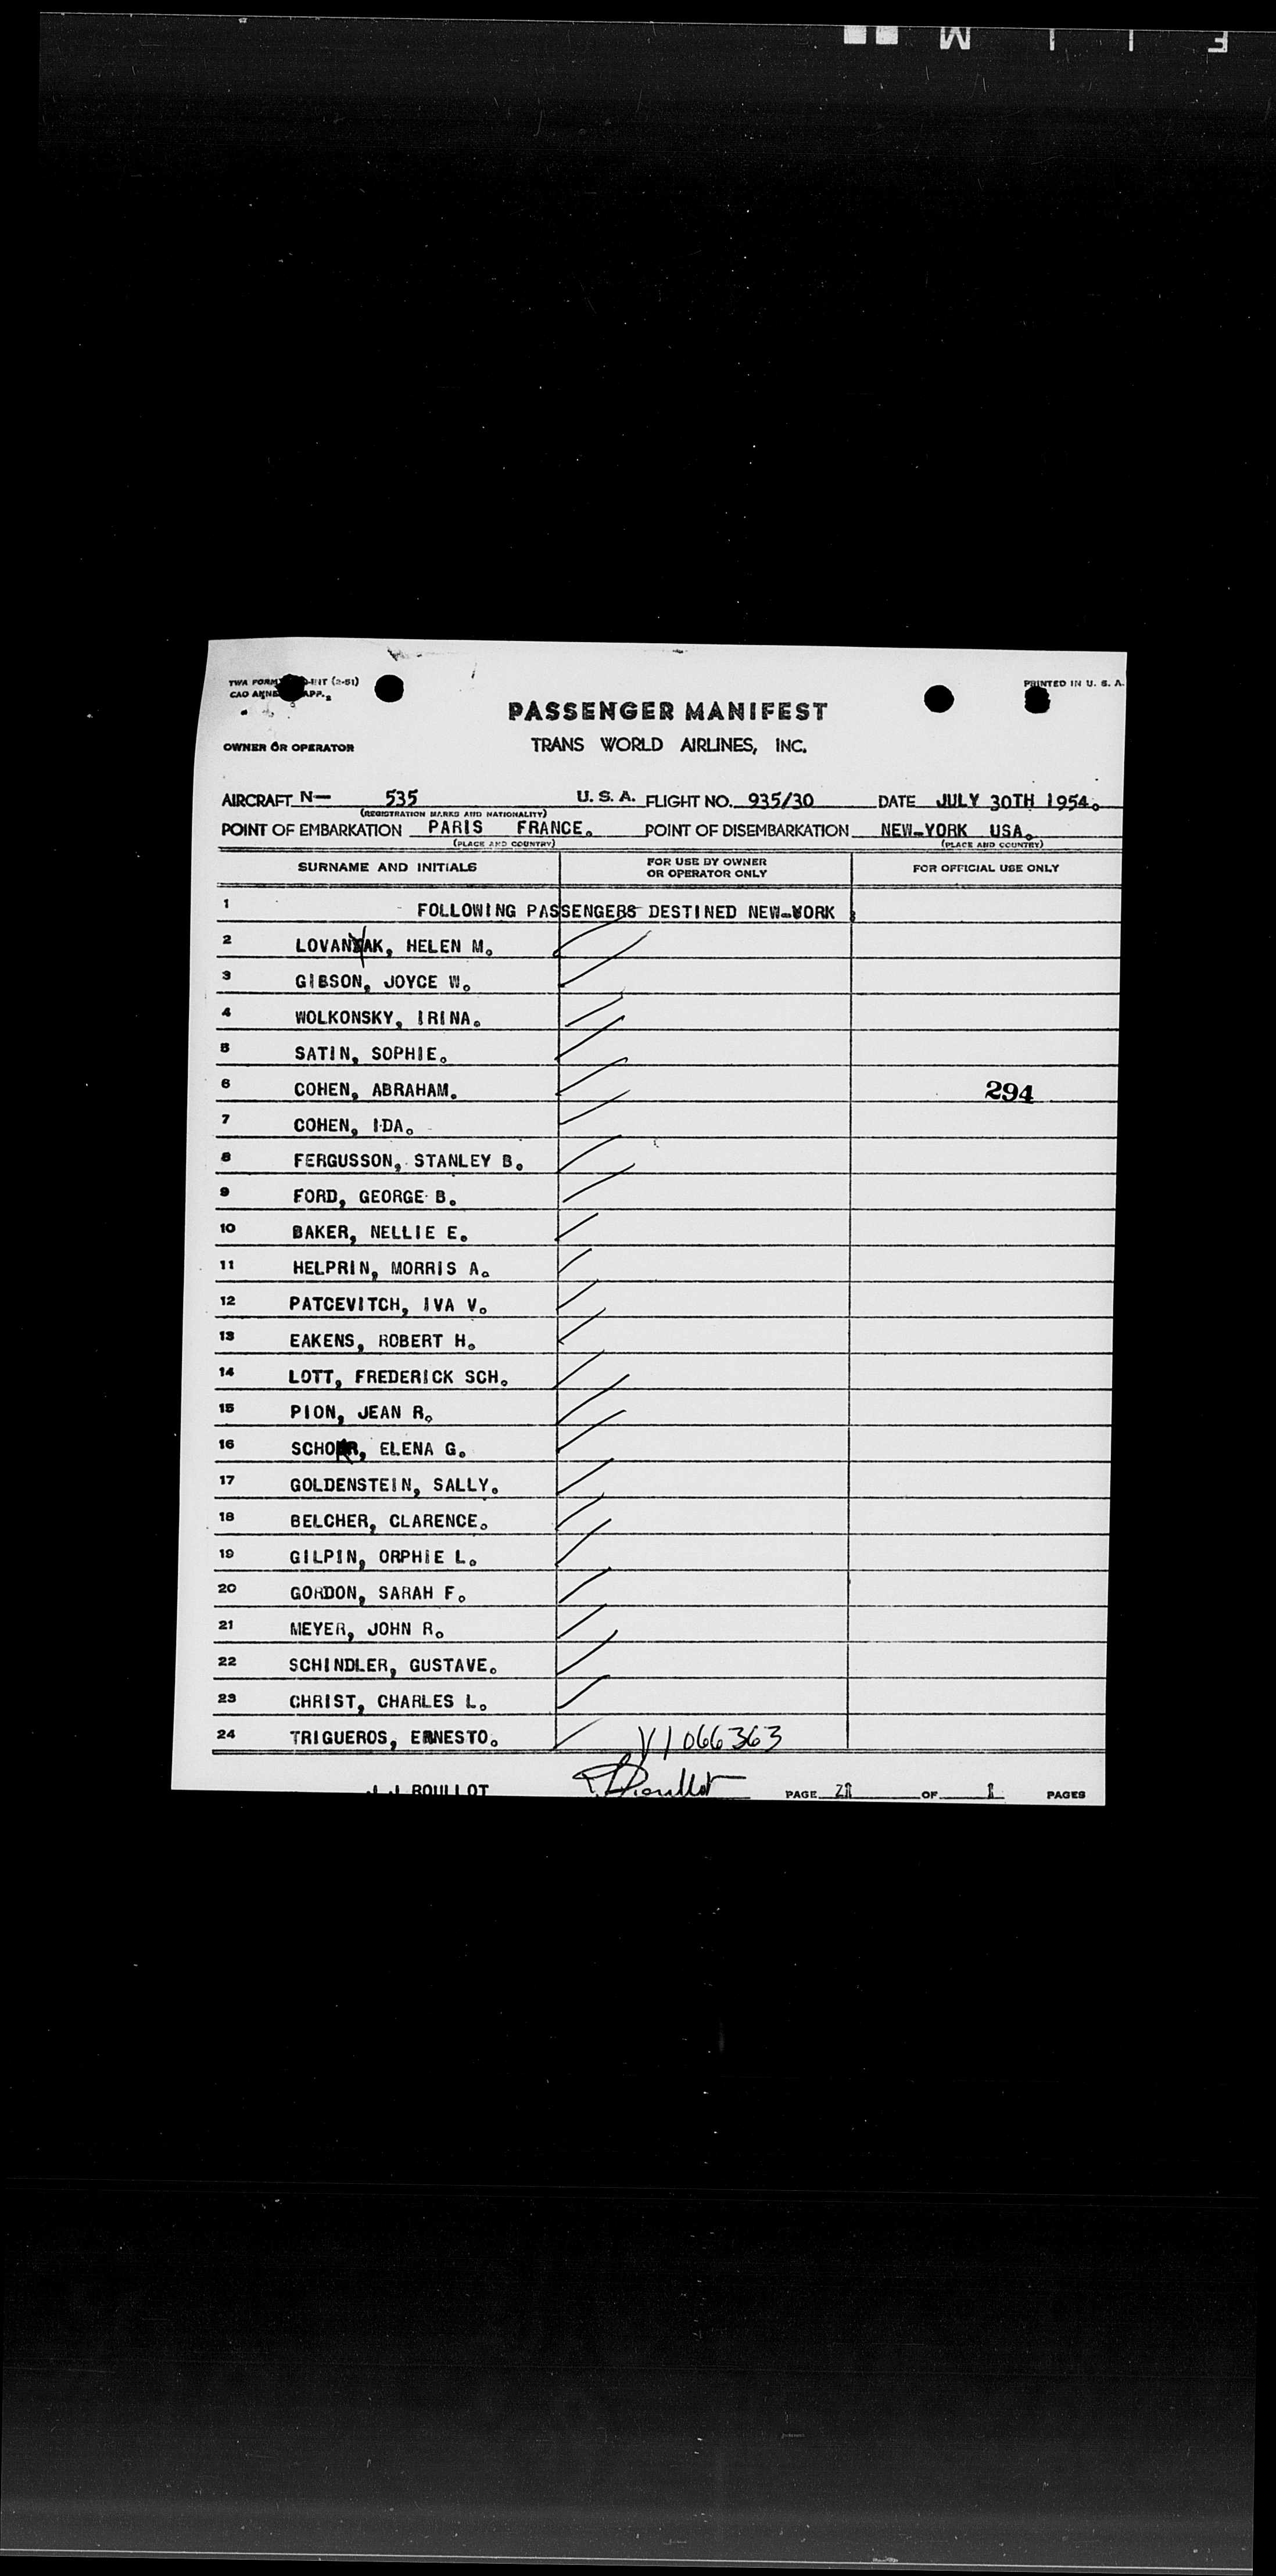 F I L M
TWA FORM INT (2-51)
PRINTED IN U. S. A.
CAO ANNE APP.
PASSENGER MANIFEST
OWNER OR OPERATOR TRANS WORLD AIRLINES, INC.
AIRCRAFT N— 535 U. S. A. FLIGHT NO. 935/30 DATE JULY 30TH 1954.
(REGISTRATION MARKS AND NATIONALITY)
POINT OF EMBARKATION PARIS FRANCE. POINT OF DISEMBARKATION NEW-YORK USA.
(PLACE AND COUNTRY) (PLACE AND COUNTRY)
SURNAME AND INITIALS FOR USE BY OWNER OR OPERATOR ONLY FOR OFFICIAL USE ONLY
1 FOLLOWING PASSENGERS DESTINED NEW-YORK :
2 HELEN M.
3 GIBSON, JOYCE W.
4 WOLKONSKY, IRINA.
5 SATIN, SOPHIE.
6 COHEN, ABRAHAM. 294
7 COHEN, IDA.
8 FERGUSSON, STANLEY B.
9 FORD, GEORGE B.
10 BAKER, NELLIE E.
11 HELPRIN, MORRIS A.
12 PATCEVITCH, IVA V.
13 EAKENS, ROBERT H.
14 LOTT, FREDERICK SCH.
15 PION, JEAN R.
16 ELENA G.
17 GOLDENSTEIN, SALLY.
18 BELCHER, CLARENCE.
19 GILPIN, ORPHIE L.
20 GORDON, SARAH F.
21 MEYER, JOHN R.
22 SCHINDLER, GUSTAVE.
23 CHRIST, CHARLES L.
24 TRIGUEROS, ERNESTO. V1066363
J J ROULLOT PAGE OF 1 PAGES